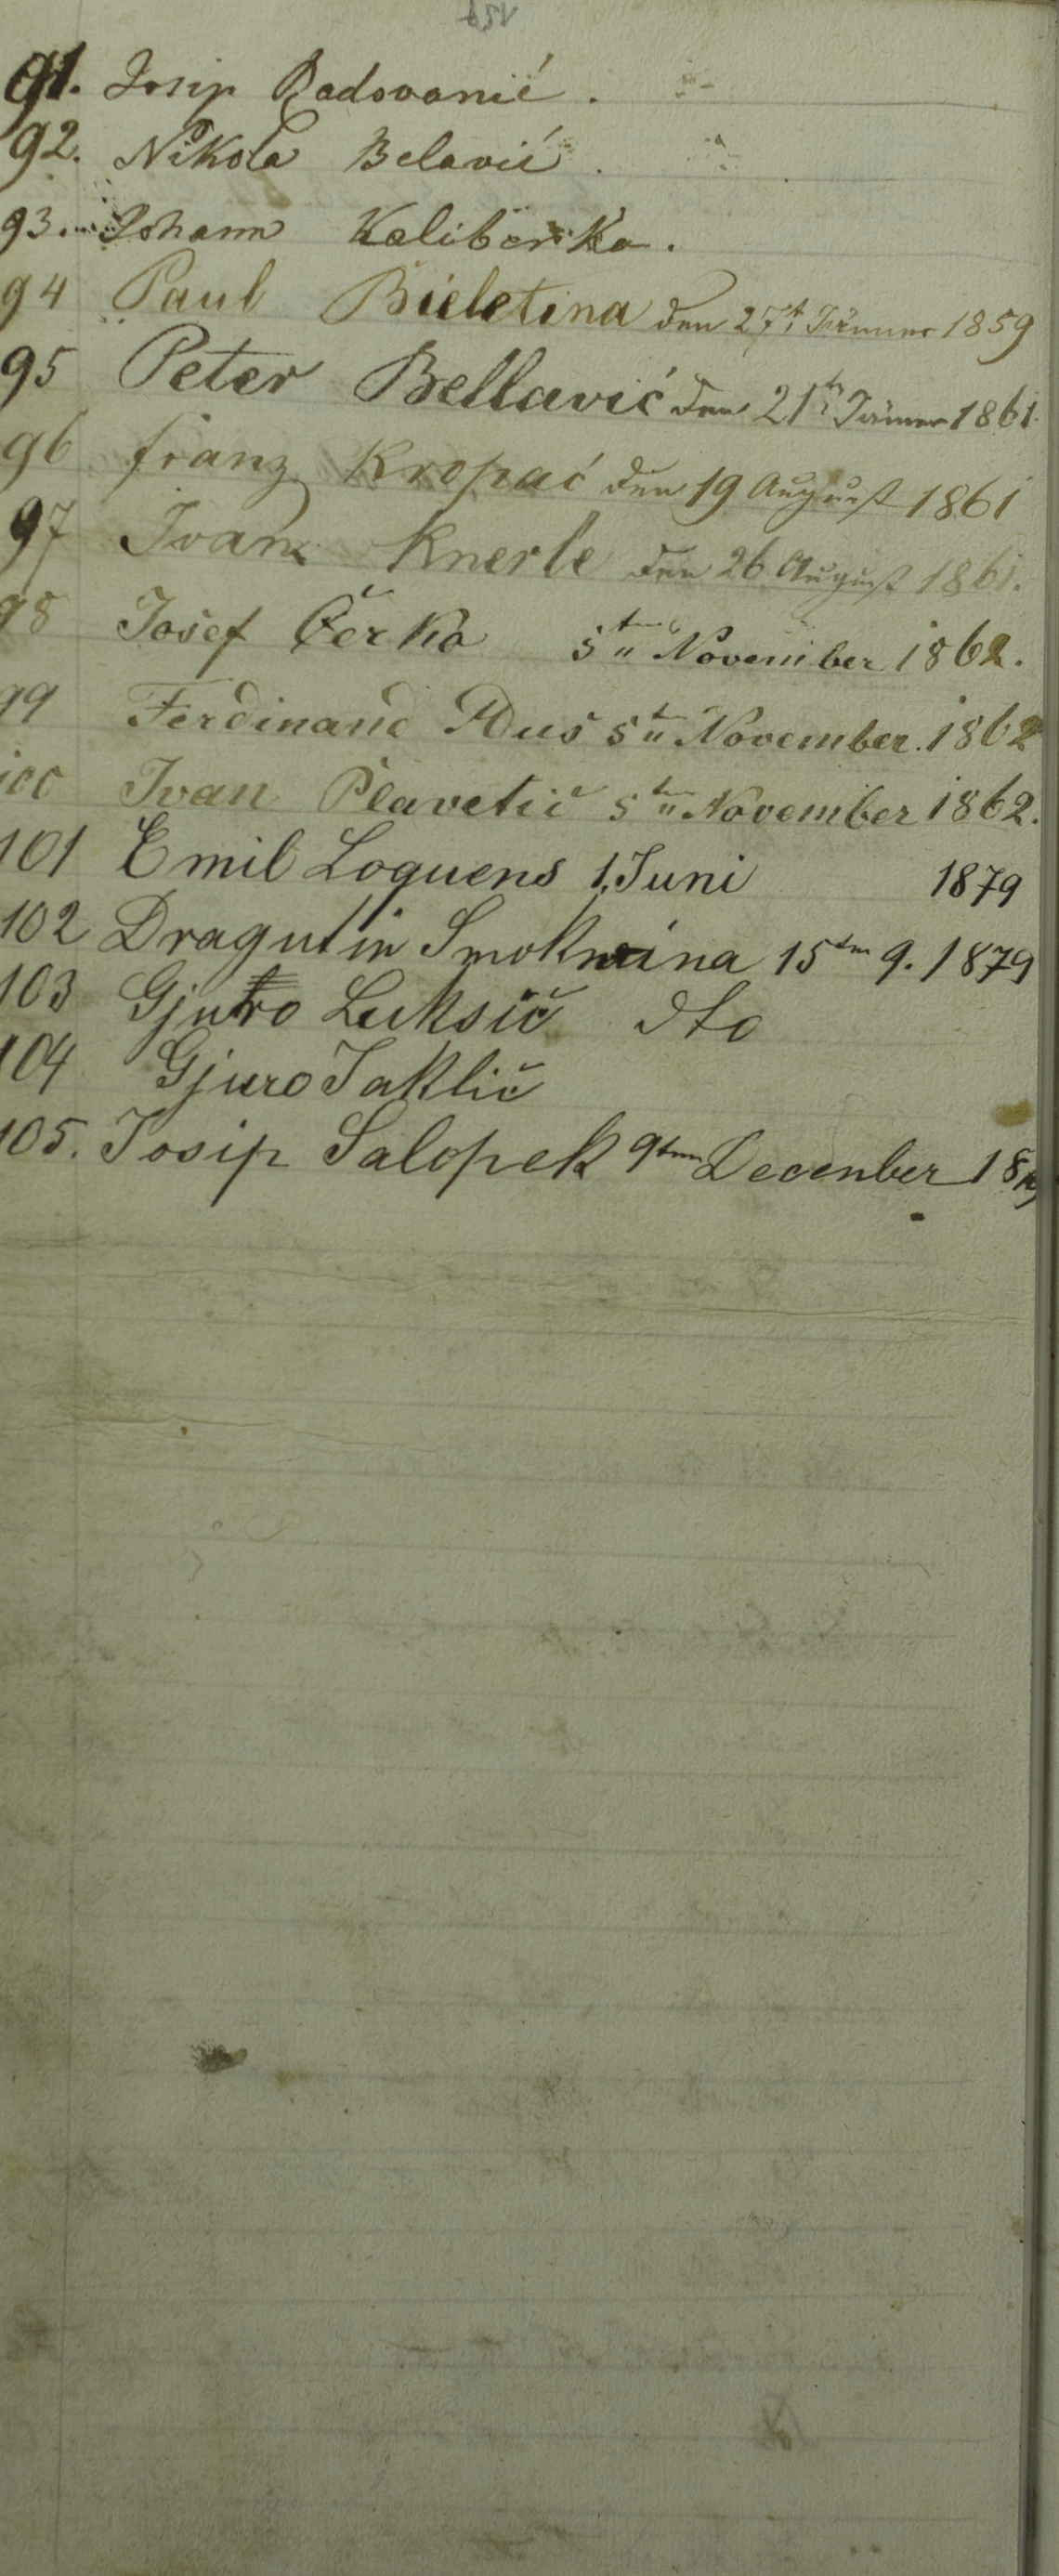 91. Josip Radovanić.
92. Nikola Belavić.
93. Johann Kaliberka.
94 Paul Bieletina den 27t Jänner 1859
95 Peter Bellavić den 21tn Jänner 1861.
96 franz Kropać den 19 August 1861
97 Ivan Knerle den 26 August 1861.
98 Josef Čerko 5tn November 1862.
99 Ferdinand 5tn November. 1862
100 Ivan Plavetič 5tn November 1862.
101 Emil Loquens 1. Juni 1879
102 Dragutin Smokvina 15tm 9. 1879
103 Gjuro Luksič dto
104 Gjuro Jaklič
105. Josip Salopek 9tm December